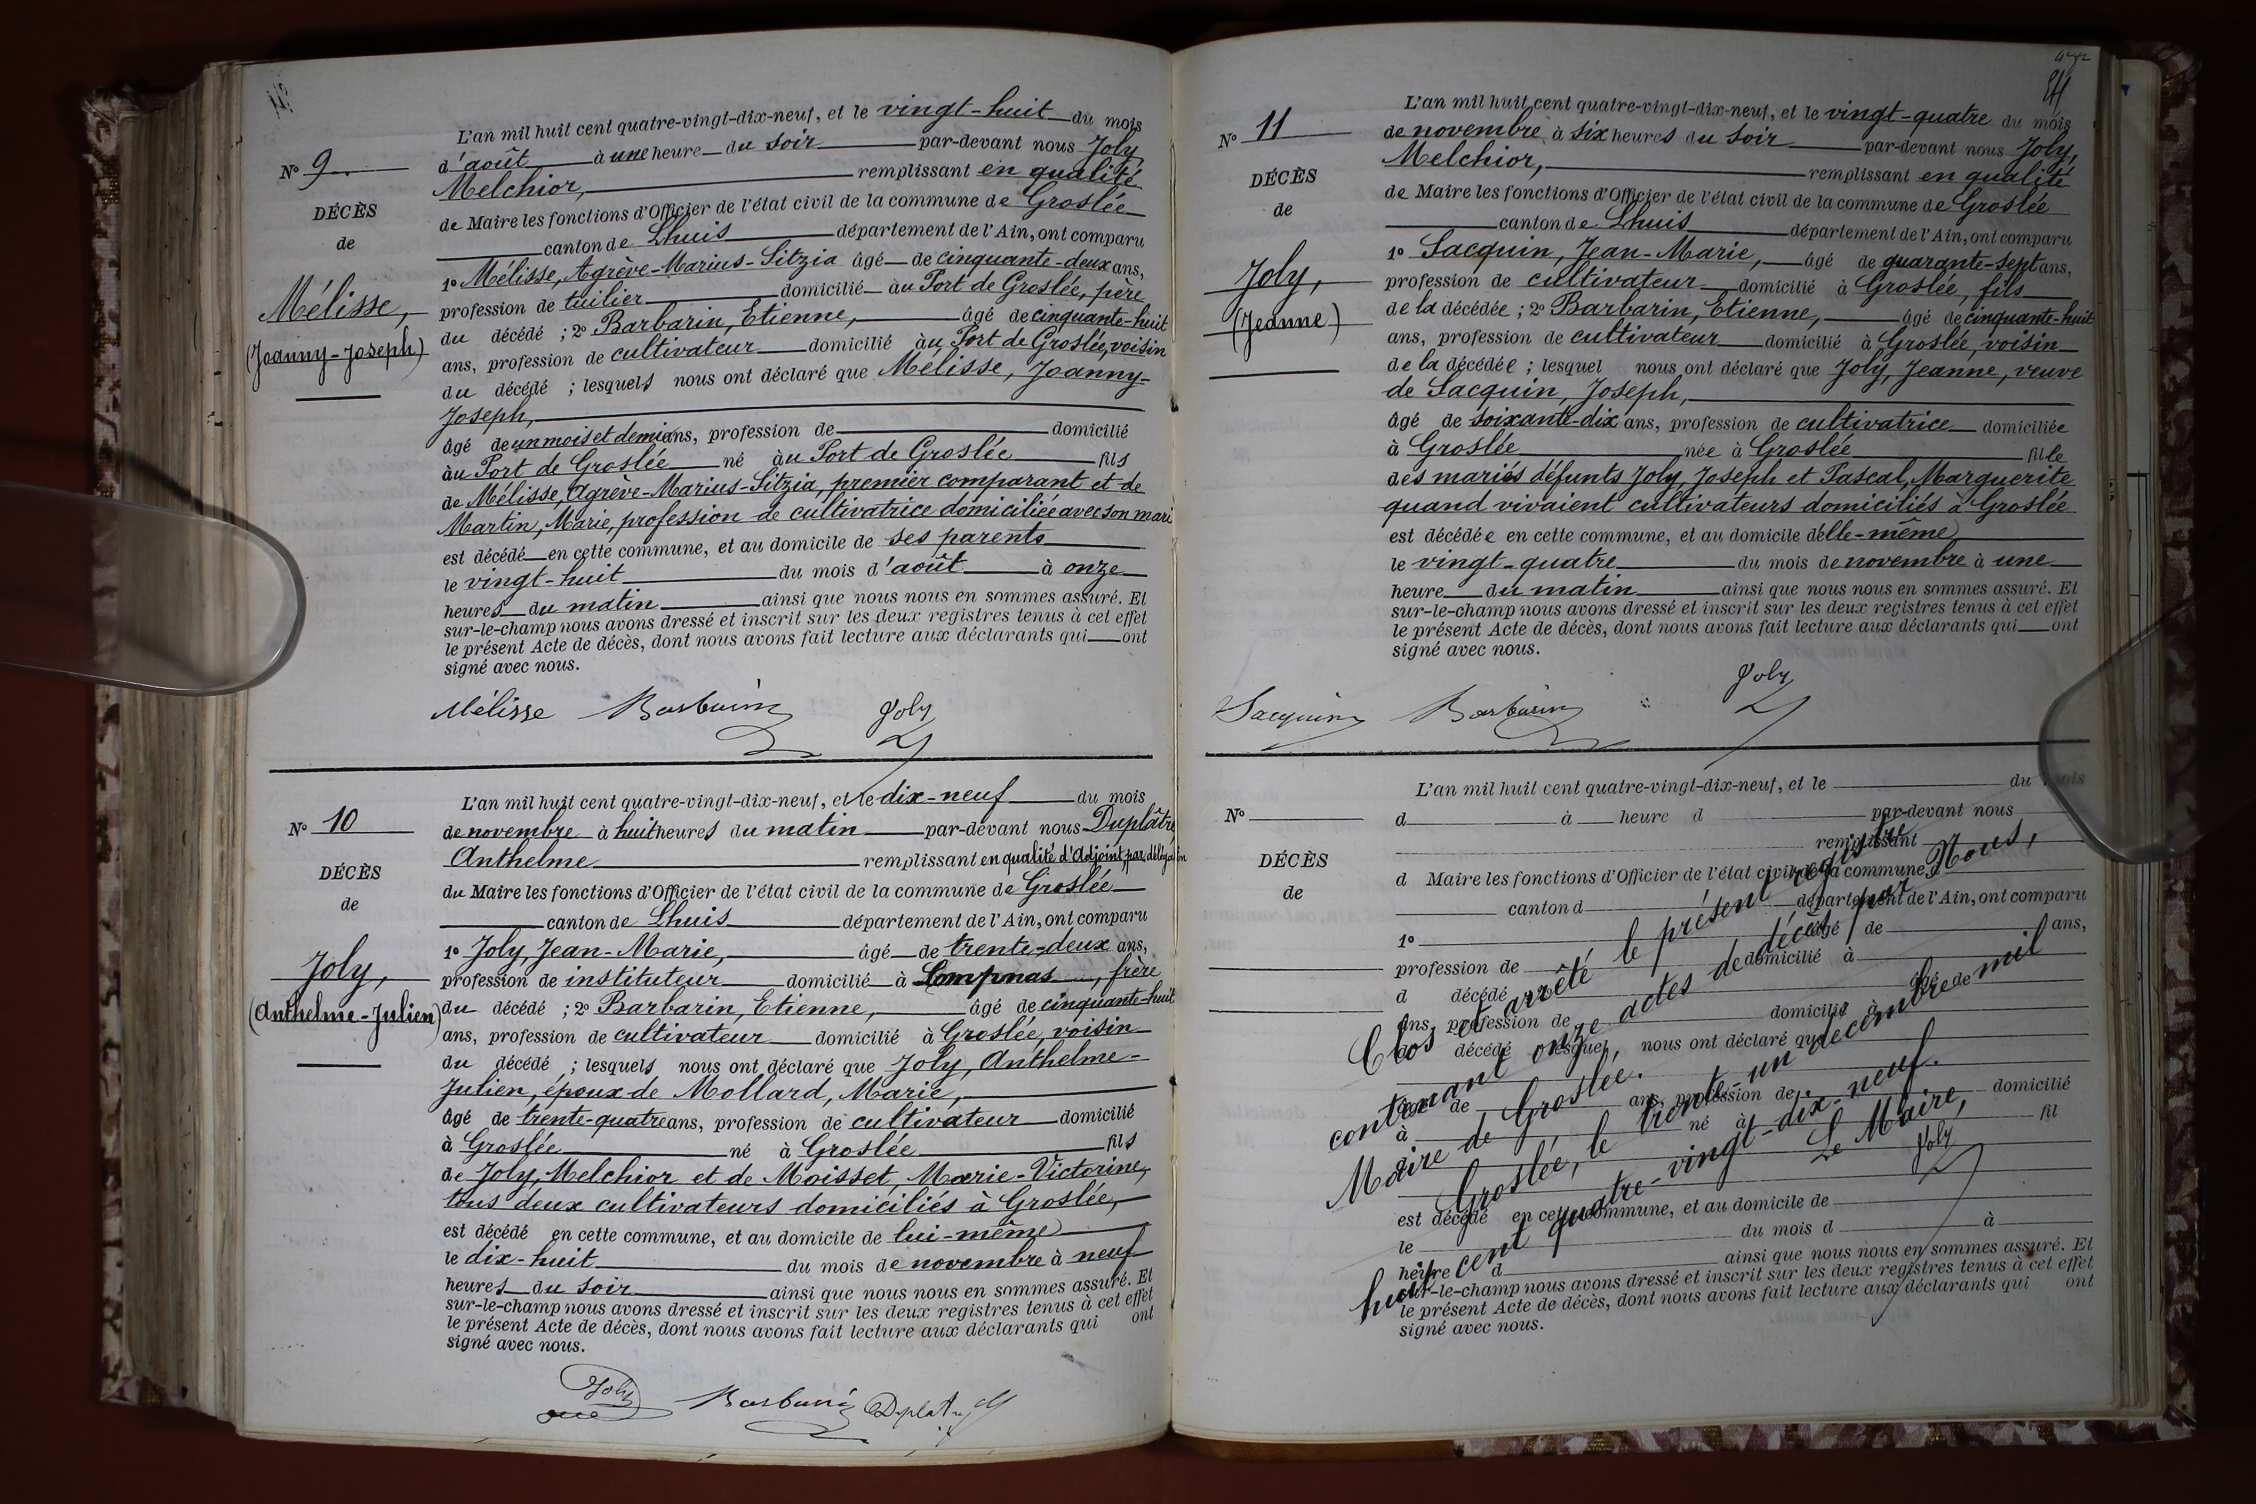 L'an mil huit cent quatre-vingt-dix-neuf, et le vingt-huit du mois
d'août à une heure du soir par-devant nous Joly,
Melchior, remplissant en qualité
de Maire les fonctions d'Officier de l'état civil de la commune de Groslée
canton de Lhuis département de l'Ain, ont comparu
1º Mélisse, Agrève-Marius-Sitzia âgé de cinquante-deux ans,
profession de tuilier domicilié au Port de Groslée, père
du décédé ; 2º Barbarin, Etienne, âgé de cinquante-huit
ans, profession de cultivateur domicilié au Port de Groslée, voisin
du décédé ; lesquels nous ont déclaré que Mélisse, Joanny-
Joseph,
âgé de un mois et demi ans, profession de domicilié
au Port de Groslée né au Port de Groslée fils
de Mélisse, Agrève-Marius-Sitzia, premier comparant et de
Martin, Marie, profession de cultivatrice domiciliée avec son mari
est décédé en cette commune, et au domicile de ses parents
le vingt-huit du mois d'août à onze
heures du matin ainsi que nous nous en sommes assuré. Et
sur-le-champ nous avons dressé et inscrit sur les deux registres tenus à cet effet
le présent Acte de décès, dont nous avons fait lecture aux déclarants qui ont
signé avec nous.
Nº 9
DÉCÈS
de
Mélisse,
(Joanny-Joseph)
Mélisse Barbarin Joly
L'an mil huit cent quatre-vingt-dix-neuf, et le dix-neuf du mois
de novembre à huit heures du matin par-devant nous Duplâtre
Anthelme remplissant en qualité d'Adjoint, par délégation
du Maire les fonctions d'Officier de l'état civil de la commune de Groslée
canton de Lhuis département de l'Ain, ont comparu
1º Joly, Jean-Marie, âgé de trente-deux ans,
profession de instituteur domicilié à Lompnas, frère
du décédé ; 2º Barbarin, Etienne, âgé de cinquante-huit
ans, profession de cultivateur domicilié à Groslée, voisin
du décédé ; lesquels nous ont déclaré que Joly, Anthelme-
Julien, époux de Mollard, Marie,
âgé de trente-quatre ans, profession de cultivateur domicilié
à Groslée né à Groslée fils
de Joly, Melchior et de Moisset, Marie-Victorine,
tous deux cultivateurs domiciliés à Groslée,
est décédé en cette commune, et au domicile de lui-même
le dix-huit du mois de novembre à neuf
heures du soir ainsi que nous nous en sommes assuré. Et
sur-le-champ nous avons dressé et inscrit sur les deux registres tenus à cet effet
le présent Acte de décès, dont nous avons fait lecture aux déclarants qui ont
signé avec nous.
Nº 10
DÉCÈS
de
Joly,
(Anthelme-Julien)
Joly Barbarin Duplatre
L'an mil huit cent quatre-vingt-dix-neuf, et le vingt-quatre du mois
de novembre à six heures du soir par-devant nous Joly,
Melchior, remplissant en qualité
de Maire les fonctions d'Officier de l'état civil de la commune de Groslée
canton de Lhuis département de l'Ain, ont comparu
1º Sacquin, Jean-Marie, âgé de quarante-sept ans,
profession de cultivateur domicilié à Groslée, fils
de la décédée ; 2º Barbarin, Etienne, âgé de cinquante-huit
ans, profession de cultivateur domicilié à Groslée, voisin
de la décédée ; lesquel nous ont déclaré que Joly, Jeanne, veuve
de Sacquin, Joseph,
âgé de soixante-dix ans, profession de cultivatrice domiciliée
à Groslée née à Groslée fille
des mariés défunts Joly, Joseph et Pascal, Marguerite
quand vivaient cultivateurs domiciliés à Groslée
est décédée en cette commune, et au domicile d'elle-même
le vingt-quatre du mois de novembre à une
heure du matin ainsi que nous nous en sommes assuré. Et
sur-le-champ nous avons dressé et inscrit sur les deux registres tenus à cet effet
le présent Acte de décès, dont nous avons fait lecture aux déclarants qui ont
signé avec nous.
Nº 11
DÉCÈS
de
Joly,
(Jeanne)
Sacquin Barbarin Joly
L'an mil huit cent quatre-vingt-dix-neuf, et le du mois
d à heure d par-devant nous
remplissant
d Maire les fonctions d'Officier de l'état civil de la commune
canton d département de l'Ain, ont comparu
1º âgé de ans,
profession de domicilié à
d décédé âgé de
ans, profession de domicilié à
d décédé lesquel nous ont déclaré que
âgé de ans, profession de domicilié
à né à fil
est décédé en cette commune, et au domicile de
le du mois d à
heure d ainsi que nous nous en sommes assuré. Et
sur-le-champ nous avons dressé et inscrit sur les deux registres tenus à cet effet
le présent Acte de décès, dont nous avons fait lecture aux déclarants qui ont
signé avec nous.
Nº
DÉCÈS
de
Clos et arrêté le présent registre
contenant onze actes de décès par Nous,
Maire de Groslée.
Groslée, le trente-un décembre mil
huit cent quatre-vingt-dix-neuf.
Le Maire,
Joly